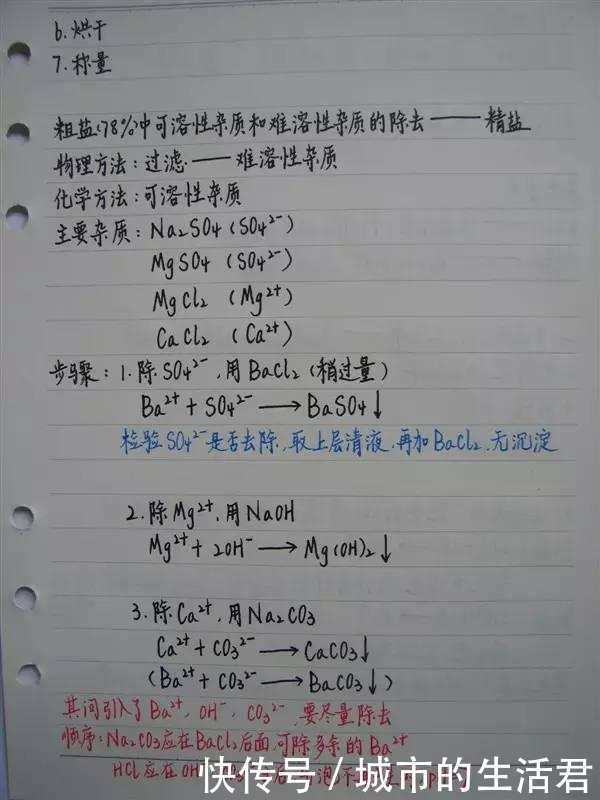 6.烘干
7.称量
粗盐(78%)中可溶性杂质和难溶性杂质的除去——精盐
物理方法:过滤——难溶性杂质
化学方法:可溶性杂质
主要杂质:Na₂SO₄(SO₄²⁻)
MgSO₄(SO₄²⁻)
MgCl₂(Mg²⁺)
CaCl₂(Ca²⁺)
步骤:1.除SO₄²⁻,用BaCl₂(稍过量)
Ba²⁺+SO₄²⁻→BaSO₄↓
检验SO₄²⁻是否去除,取上层清液,再加BaCl₂,无沉淀
2.除Mg²⁺,用NaOH
Mg²⁺+2OH⁻→Mg(OH)₂↓
3.除Ca²⁺,用Na₂CO₃
Ca²⁺+CO₃²⁻→CaCO₃↓
(Ba²⁺+CO₃²⁻→BaCO₃↓)
其间引入了Ba²⁺、OH⁻、CO₃²⁻,要尽量除去
顺序:Na₂CO₃应在BaCl₂后面,可除多余的Ba²⁺
HCl应在OH
快传号/城市的生活君